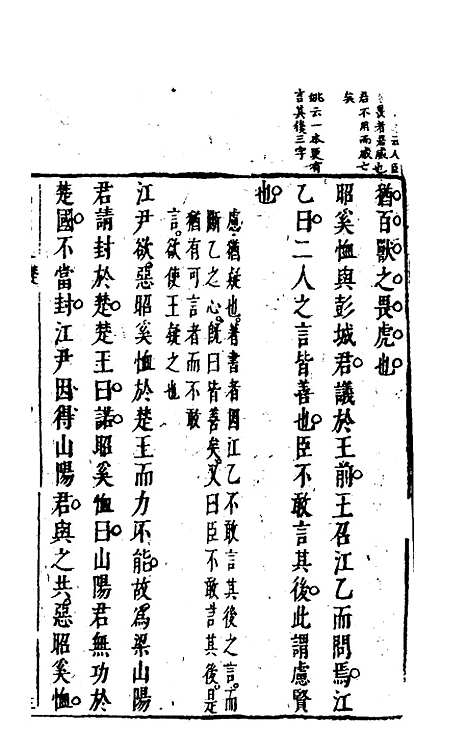 云人臣
畏者君威也
君不用而威亡
矣
姚云一本更有
言其後三字
猶百獸之畏虎也
昭奚恤與彭城君議於王前王召江乙而問焉江
乙曰二人之言皆善也臣不敢言其後此謂慮賢
也
慮猶疑也著書者因江乙不敢言其後之言而
斷乙之心既曰皆善矣又曰臣不敢言其後是
猶有可言者而不敢
言欲使王疑之也
江尹欲惡昭奚恤於楚王而力不能故爲梁山陽
君請封於楚楚王曰諾昭奚恤曰山陽君無功於
楚國不當封江尹因得山陽君與之共惡昭奚恤
楚